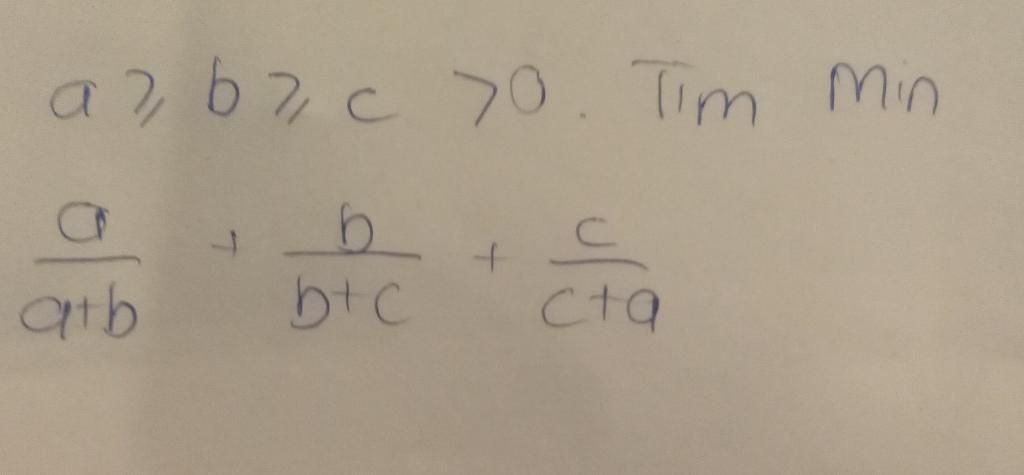 a ⩾ b ⩾ c > 0. Tim Min
a/(a+b) + b/(b+c) + c/(c+a)